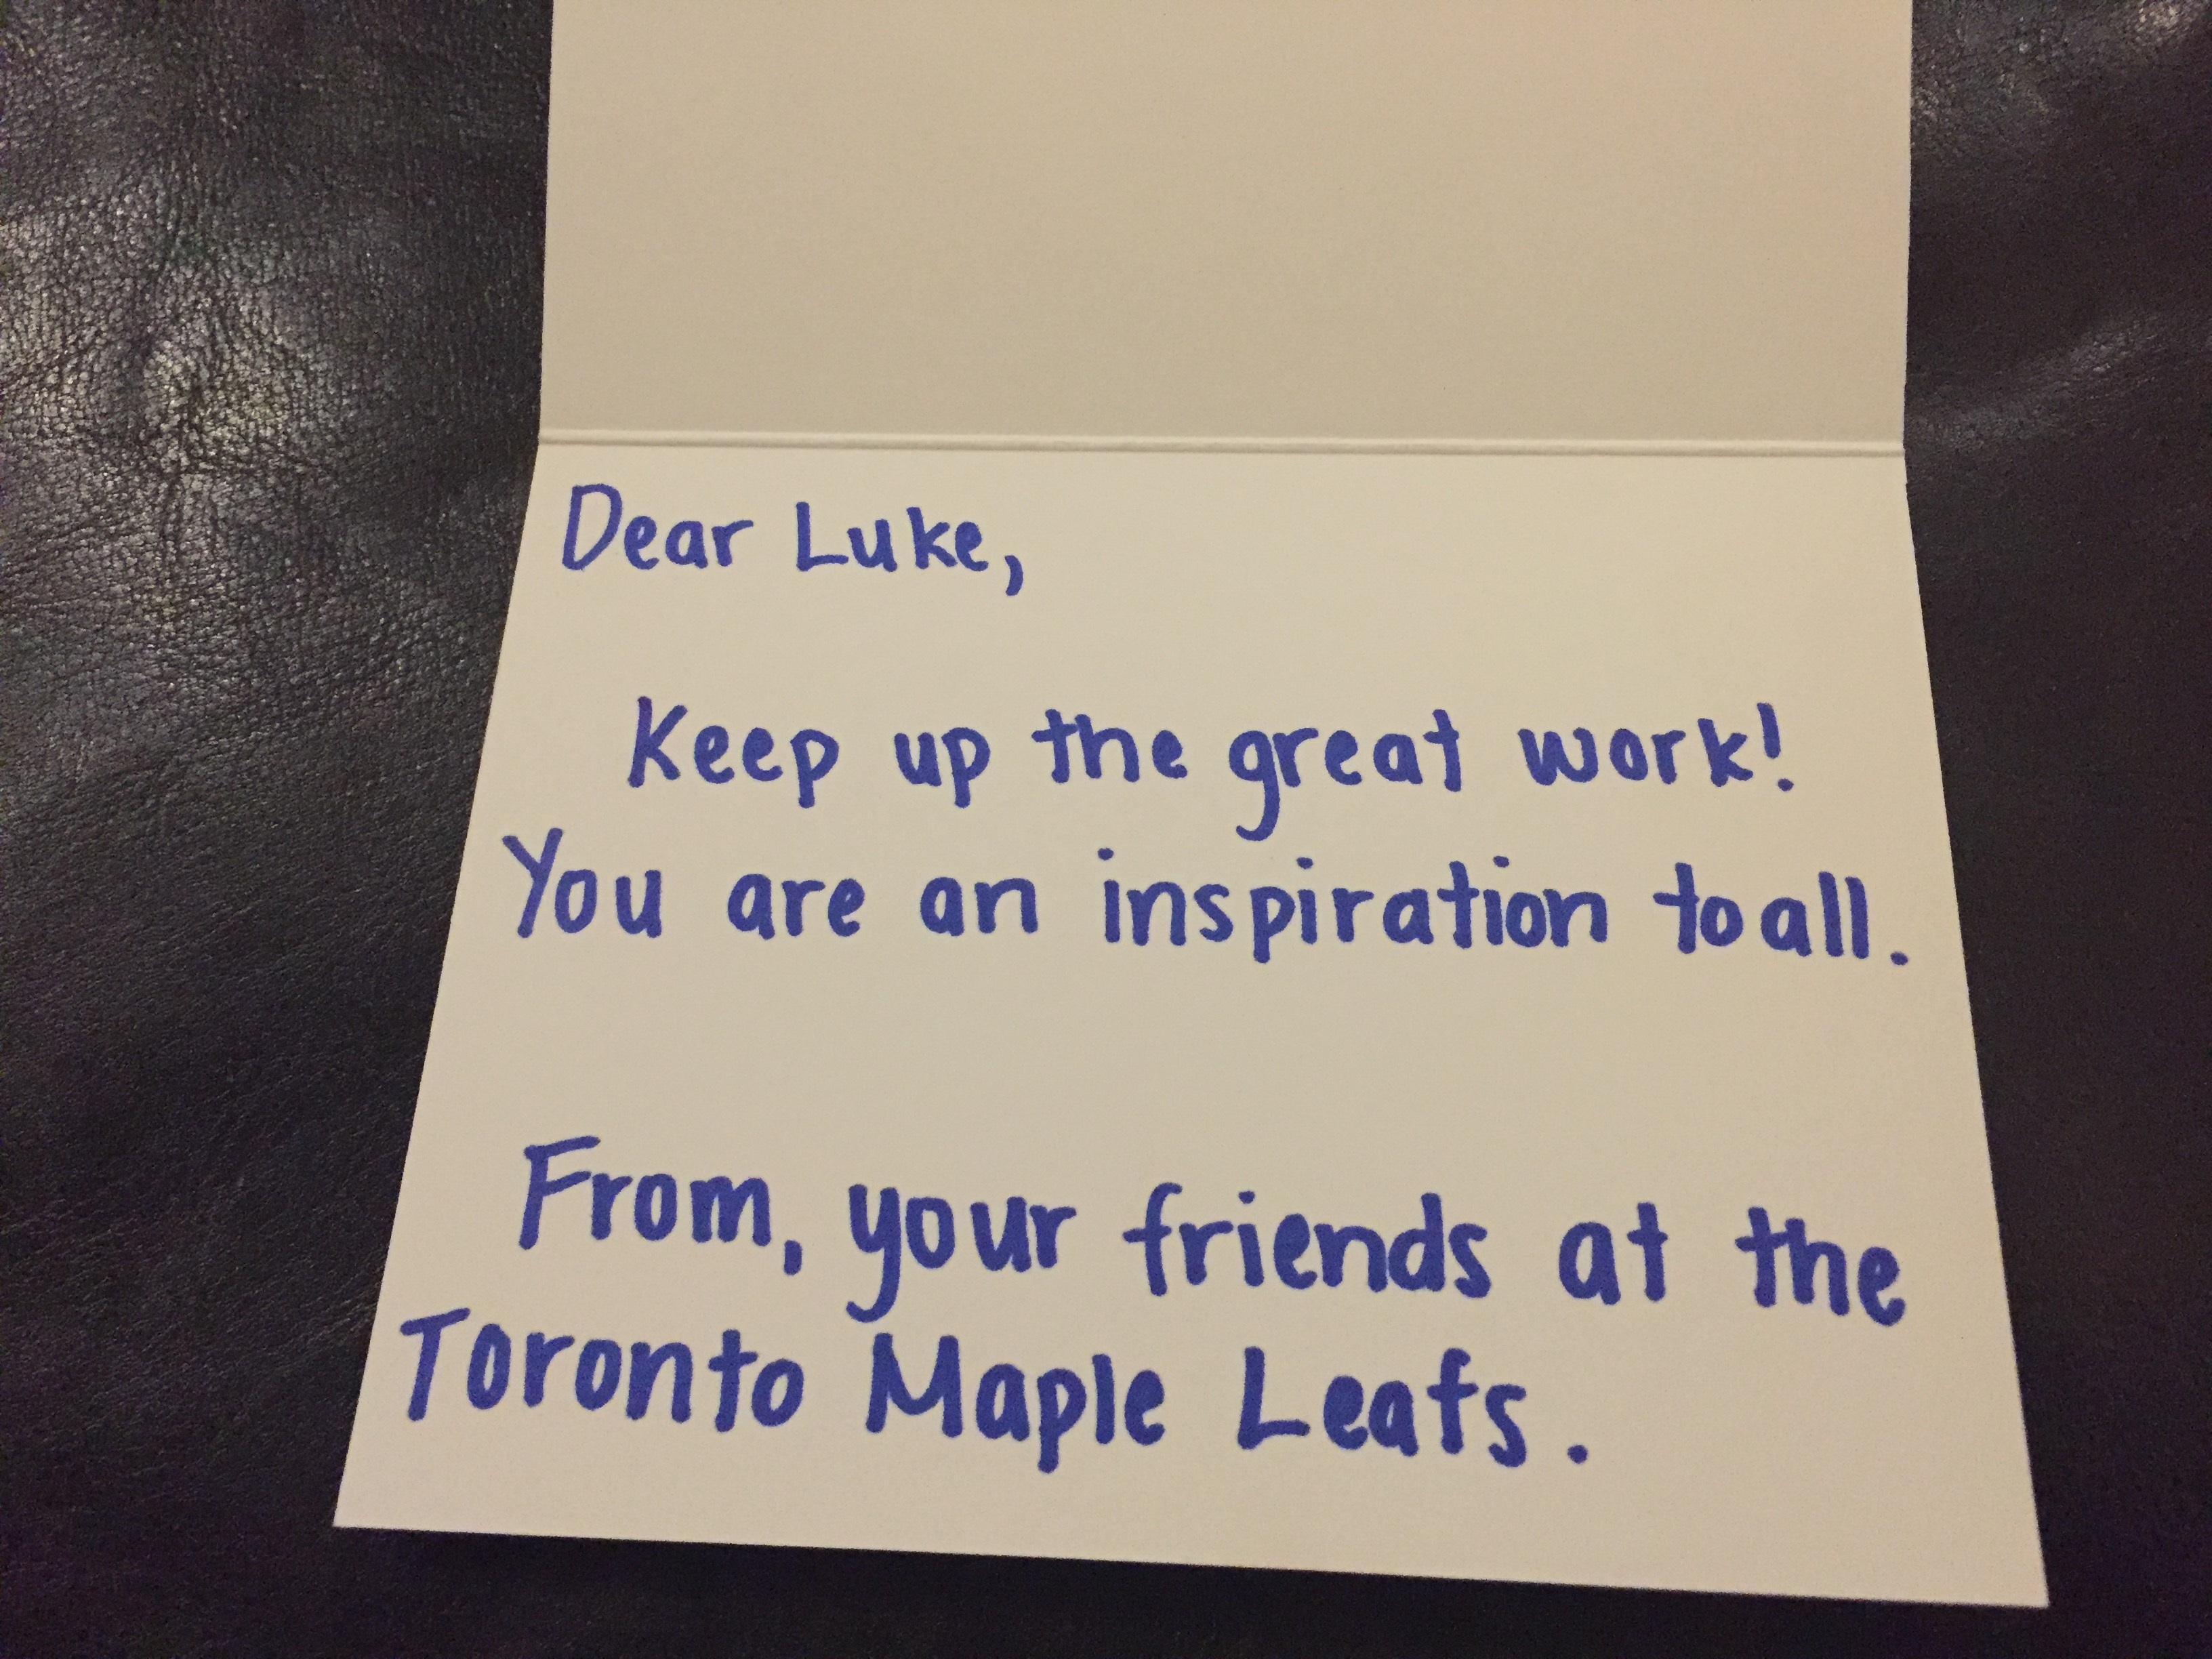 Dear Luke,
Keep up the great work!
You are an inspiration to all.
From, your friends at the
Toronto Maple Leafs.